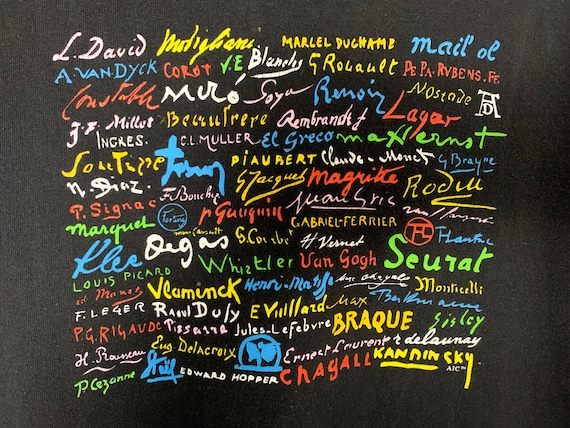 L. David Modigliani MARCEL DUCHAMP mail ol
A. VAN DYCK COROT V.E Blanche G Rouault PE PA. RVBENS. FE
Constable Miró Goya Renoir
J. F. Millet Beaufrere Rembrandt f Lagar
INGRES. C.L. MULLER El Greco max Ernst
Souterre PIAUBERT Claude Monet G Braque
N. Diaz. F. Bouche G Jacquet Magritte Rodin
P. Signac P Gauguin Juan Gris
marquet Fortuny GABRIEL-FERRIER
Degas G. Courbet H Vernet
Klee Whistler Van Gogh Seurat
LOUIS PICARD Henri-Matisse Marc Chagall Monticelli
Vlaminck Max Beckmann
F. LEGER Raoul Dufy E Vuillard BRAQUE Sisley
P.G. RIGAUDC Pissarro Jules-Lefebvre
H. Rousseau Eug. Delacroix Ernest Laurent r delaunay
P Cezanne EDWARD HOPPER CHAGALL KANDINSKY
AIC™